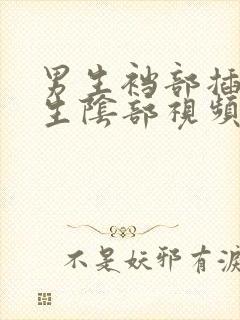 男生裆部插
生陰部視頻
不是妖邪有淚